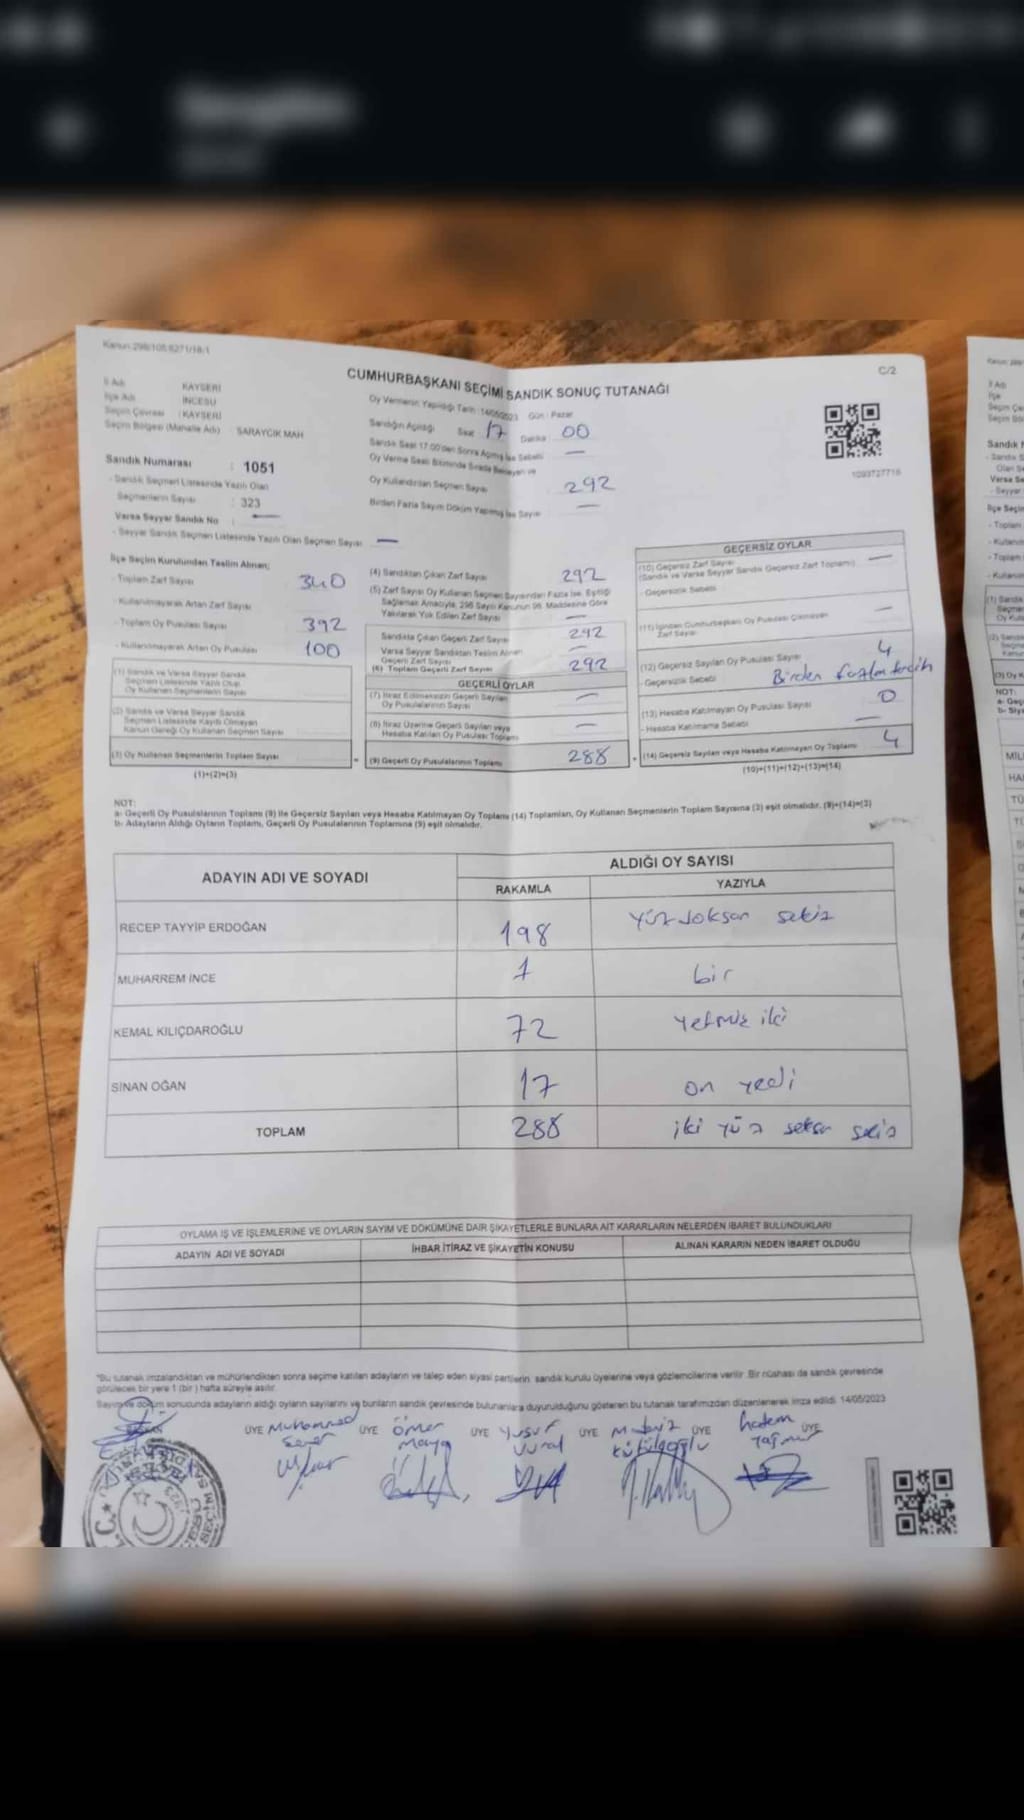 Kanun:298/105.6271/18/1
C/2
CUMHURBAŞKANI SEÇİMİ SANDIK SONUÇ TUTANAĞI
İl Adı : KAYSERİ
İlçe Adı : İNCESU
Seçim Çevresi : KAYSERİ
Seçim Bölgesi (Mahalle Adı) : SARAYCIK MAH
Oy Vermenin Yapıldığı Tarih :14/05/2023 Gün : Pazar
Sandığın Açıldığı Saat 17 Dakika : 00
Sandık Saat 17.00'den Sonra Açılmış İse Sebebi : —
Oy Verme Saati Bitiminde Sırada Bekleyen ve
Oy Kullandırılan Seçmen Sayısı : 292
Birden Fazla Sayım Döküm Yapılmış İse Sayısı : —
1093727718
Sandık Numarası : 1051
- Sandık Seçmen Listesinde Yazılı Olan
Seçmenlerin Sayısı : 323
Varsa Seyyar Sandık No : —
- Seyyar Sandık Seçmen Listesinde Yazılı Olan Seçmen Sayısı : —
İlçe Seçim Kurulundan Teslim Alınan;
- Toplam Zarf Sayısı 340
- Kullanılmayarak Artan Zarf Sayısı
- Toplam Oy Pusulası Sayısı 392
- Kullanılmayarak Artan Oy Pusulası 100
(1) Sandık ve Varsa Seyyar Sandık
Seçmen Listesinde Yazılı Olup
Oy Kullanan Seçmenlerin Sayısı
(2) Sandık ve Varsa Seyyar Sandık
Seçmen Listesinde Kayıtlı Olmayan
Kanun Gereği Oy Kullanan Seçmen Sayısı
(3) Oy Kullanan Seçmenlerin Toplam Sayısı =
(1)+(2)=(3)
(4) Sandıktan Çıkan Zarf Sayısı 292
(5) Zarf Sayısı Oy Kullanan Seçmen Sayısından Fazla İse, Eşitliği
Sağlamak Amacıyla, 298 Sayılı Kanunun 98. Maddesine Göre
Yakılarak Yok Edilen Zarf Sayısı —
Sandıkta Çıkan Geçerli Zarf Sayısı 292
Varsa Seyyar Sandıktan Teslim Alınan
Geçerli Zarf Sayısı —
(6) Toplam Geçerli Zarf Sayısı 292
GEÇERLİ OYLAR
(7) İtiraz Edilmeksizin Geçerli Sayılan
Oy Pusulalarının Sayısı —
(8) İtiraz Üzerine Geçerli Sayılan veya
Hesaba Katılan Oy Pusulası Toplamı —
(9) Geçerli Oy Pusulalarının Toplamı 288 +
GEÇERSİZ OYLAR
(10) Geçersiz Zarf Sayısı —
(Sandık ve Varsa Seyyar Sandık Geçersiz Zarf Toplamı)
- Geçersizlik Sebebi
(11) İçinden Cumhurbaşkanı Oy Pusulası Çıkmayan
Zarf Sayısı —
(12) Geçersiz Sayılan Oy Pusulası Sayısı 4
- Geçersizlik Sebebi Birden fazla tercih
(13) Hesaba Katılmayan Oy Pusulası Sayısı 0
- Hesaba Katılmama Sebebi —
(14) Geçersiz Sayılan veya Hesaba Katılmayan Oy Toplamı 4
(10)+(11)+(12)+(13)=(14)
NOT:
a- Geçerli Oy Pusulalarının Toplamı (9) ile Geçersiz Sayılan veya Hesaba Katılmayan Oy Toplamı (14) Toplamları, Oy Kullanan Seçmenlerin Toplam Sayısına (3) eşit olmalıdır. (9)+(14)=(3)
b- Adayların Aldığı Oyların Toplamı, Geçerli Oy Pusulalarının Toplamına (9) eşit olmalıdır.
ADAYIN ADI VE SOYADI ALDIĞI OY SAYISI
RAKAMLA YAZIYLA
RECEP TAYYİP ERDOĞAN 198 Yüz doksan sekiz
MUHARREM İNCE 1 bir
KEMAL KILIÇDAROĞLU 72 Yetmiş iki
SİNAN OĞAN 17 on yedi
TOPLAM 288 iki yüz seksen sekiz
OYLAMA İŞ VE İŞLEMLERİNE VE OYLARIN SAYIM VE DÖKÜMÜNE DAİR ŞİKAYETLERLE BUNLARA AİT KARARLARIN NELERDEN İBARET BULUNDUKLARI
ADAYIN ADI VE SOYADI İHBAR İTİRAZ VE ŞİKAYETİN KONUSU ALINAN KARARIN NEDEN İBARET OLDUĞU
*Bu tutanak imzalandıktan ve mühürlendikten sonra seçime katılan adayların ve talep eden siyasi partilerin sandık kurulu üyelerine veya gözlemcilerine verilir. Bir nüshası da sandık çevresinde
görülecek bir yere 1 (bir) hafta süreyle asılır.
Sayım ve döküm sonucunda adayların aldığı oyların sayılarını ve bunların sandık çevresinde bulunanlara duyurulduğunu gösteren bu tutanak tarafımızdan düzenlenerek imza edildi. 14/05/2023
ÜYE Muhammed ÜYE Ömer ÜYE Yusuf ÜYE ÜYE hatem ÜYE
Vural Yağmur